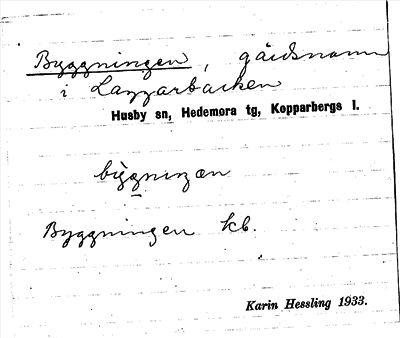 Byggningen, gårdsnamn
i Laggarbacken
Husby sn, Hedemora tg, Kopparbergs l.
bỳgniŋan
Byggningen kb.
Karin Hessling 1933.